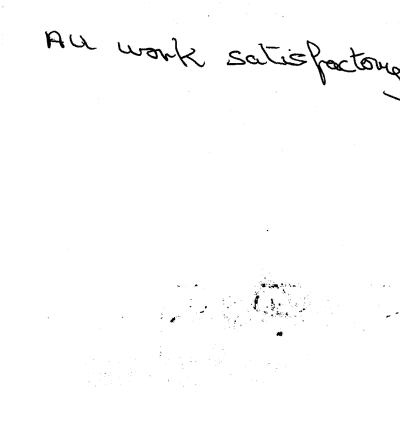 All work satisfactory